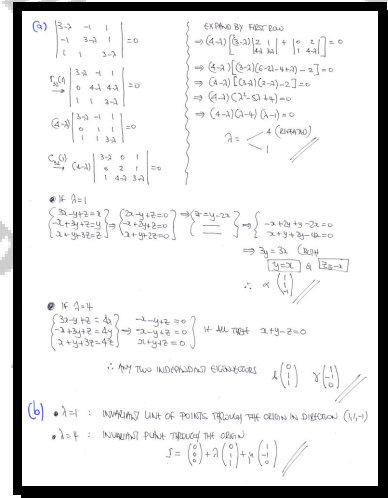 (a) |3-λ -1 1|
|-1 3-λ 1| = 0
|1 1 3-λ|
r₃₂(1) → |3-λ -1 1|
|0 4-λ 4-λ| = 0
|1 1 3-λ|
(4-λ) |3-λ -1 1|
|0 1 1| = 0
|1 1 3-λ|
(4-λ) |3-λ 0 1|
|0 2 1| = 0
|1 4-λ 3-λ|
EXPAND BY FIRST ROW
⇒ (4-λ)[(3-λ)|2 1; 4-λ 3-λ| + |0 2; 1 4-λ|] = 0
⇒ (4-λ)[(3-λ)(6-2λ-4+λ) - 2] = 0
⇒ (4-λ)[(3-λ)(2-λ) - 2] = 0
⇒ (4-λ)(λ²-5λ+4) = 0
⇒ (4-λ)(λ-4)(λ-1) = 0
λ = 4 (REPEATED)
1
• IF λ=1
{3x-y+z=x} ⇒ {2x-y+z=0} ⇒ z=y-2x ⇒ {-x+2y+y-2x=0
{-x+3y+z=y} {-x+2y+z=0} x+y+2y-4x=0
{x+y+3z=z} {x+y+2z=0}
⇒ 3y=3x (BOTH)
y=x & z=-x
∴ α(1 1 -1)
• IF λ=4
{3x-y+z=4x} -x-y+z=0
{-x+3y+z=4y} ⇒ -x-y+z=0 IE ALL THREE x+y-z=0
{x+y+3z=4z} x+y-z=0
∴ ANY TWO INDEPENDENT EIGENVECTORS (0 1 1) γ(1 -1 0)
(b) • λ=1 : INVARIANT LINE OF POINTS THROUGH THE ORIGIN IN DIRECTION (1,1,-1)
• λ=4 : INVARIANT PLANE THROUGH THE ORIGIN
r = (0 0 0) + λ(0 1 1) + μ(1 -1 0)